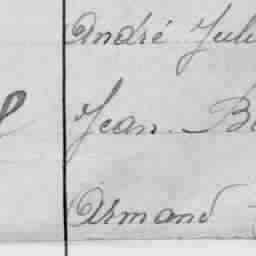 André Jule
Jean B
Armand